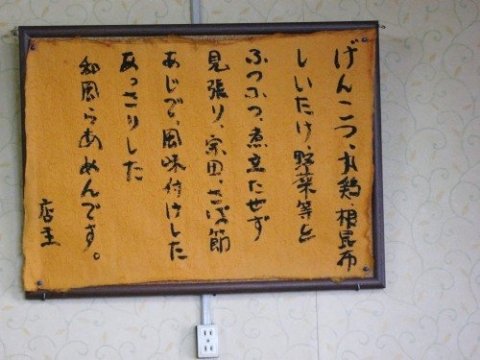 げんこつ、丸鶏、根昆布
しいたけ、野菜等と
ふつふつ、煮立たせず
見張り、宗田、さば節
あじで、風味付けした
あっさりした
和風らあめんです。
店主